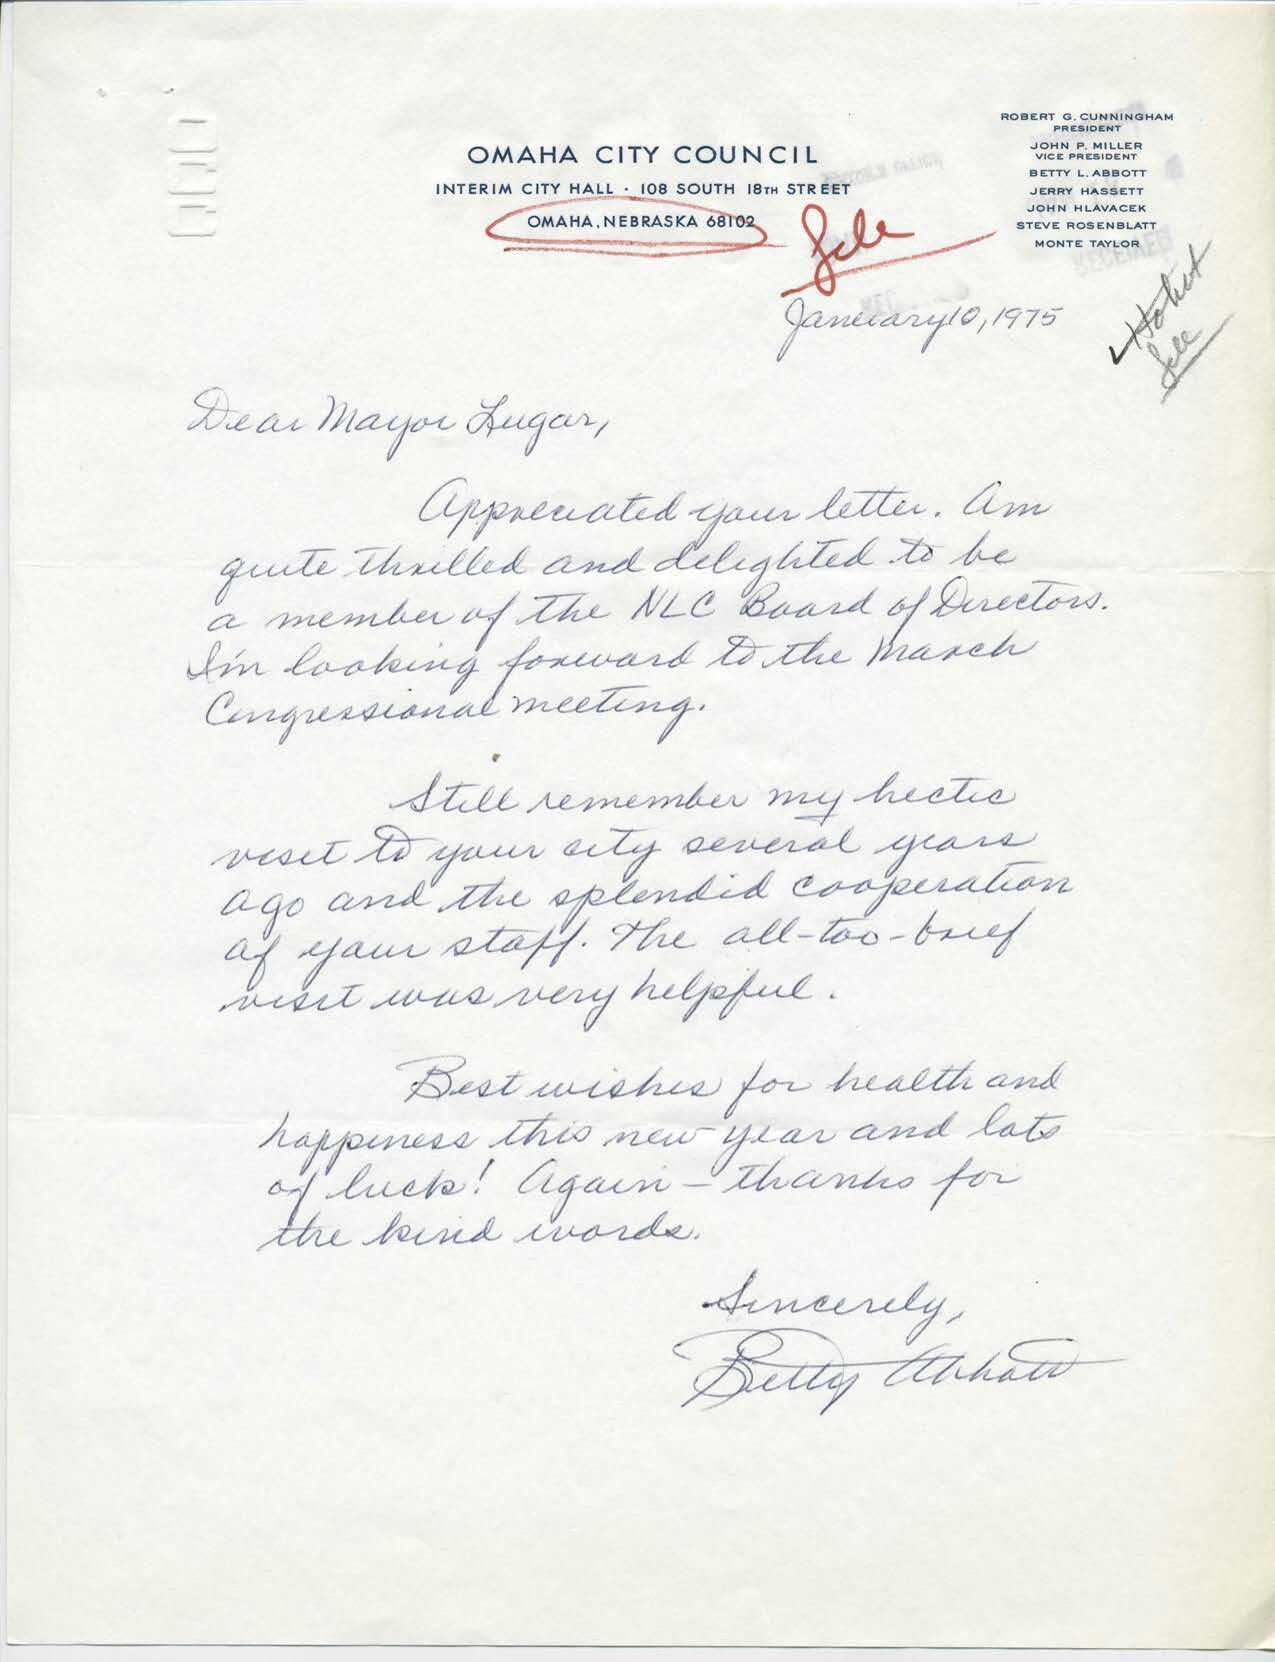 OMAHA CITY COUNCIL
INTERIM CITY HALL · 108 SOUTH 18TH STREET
OMAHA, NEBRASKA 68102
ROBERT G. CUNNINGHAM
PRESIDENT
JOHN P. MILLER
VICE PRESIDENT
BETTY L. ABBOTT
JERRY HASSETT
JOHN HLAVACEK
STEVE ROSENBLATT
MONTE TAYLOR
RECEIVED
File
file
January 10, 1975
Dear Mayor Lugar,
Appreciated your letter. Am
quite thrilled and delighted to be
a member of the NLC Board of Directors.
I'm looking forward to the March
Congressional meeting.
Still remember my hectic
visit to your city several years
ago and the splendid cooperation
of your staff. The all-too-brief
visit was very helpful.
Best wishes for health and
happiness this new year and lots
of luck! Again - thanks for
the kind words.
Sincerely,
Betty Abbott